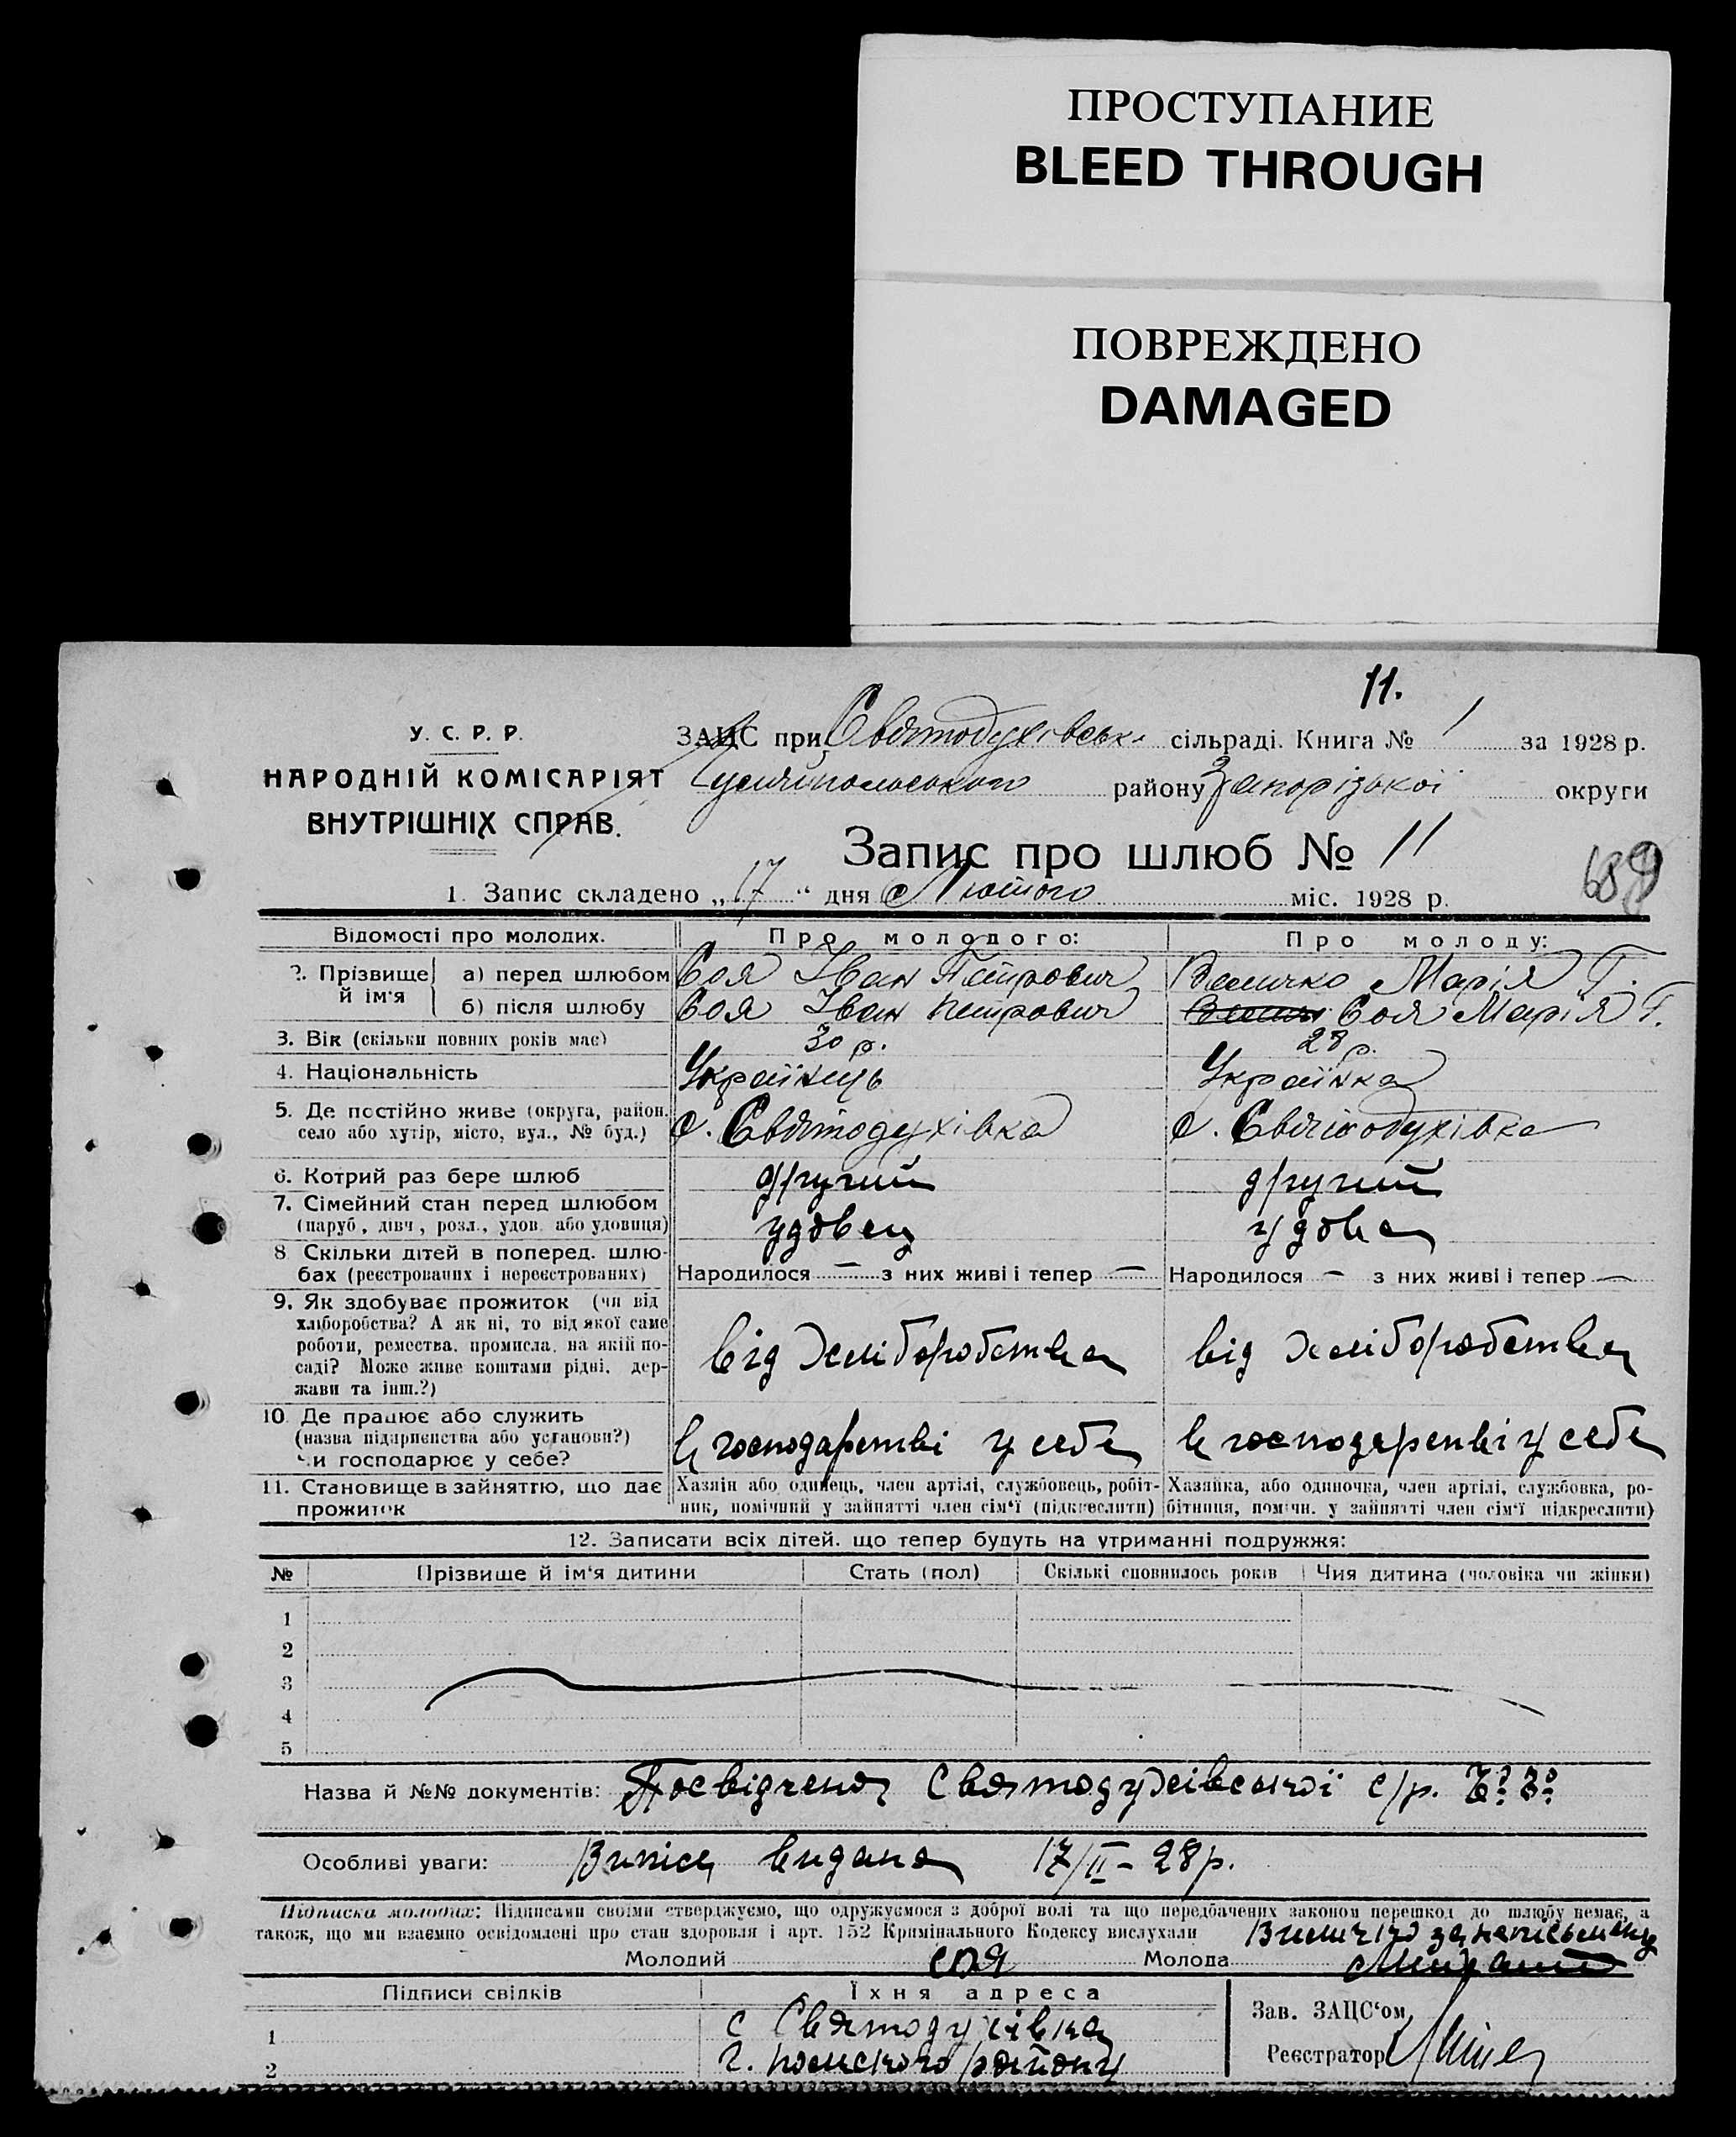 ПРОСТУПАНИЕ
BLEED THROUGH
ПОВРЕЖДЕНО
DAMAGED
11.
У. С. Р. Р.
НАРОДНІЙ КОМІСАРІЯТ
ВНУТРІШНІХ СПРАВ.
ЗАЦС при Святодухівськ. сільраді. Книга № 1 за 1928 р.
району Запорізької округи
Запис про шлюб № 11
689
1. Запис складено „17“ дня Лютого міс. 1928 р.
Відомості про молодих. Про молодого: Про молоду:
2. Прізвище й ім'я
а) перед шлюбом Соя Іван Петрович Величко Марія Г.
б) після шлюбу Соя Іван Петрович Соя Марія Г.
3. Вік (скільки повних років має) 30 р. 28 р.
4. Національність Українець Українка
5. Де постійно живе (округа, район, село або хутір, місто, вул., № буд.) с. Святодухівка с. Святодухівка
6. Котрий раз бере шлюб другий другий
7. Сімейний стан перед шлюбом (паруб., дівч., розл., удов. або удовиця) удовец удова
8. Скільки дітей в поперед. шлюбах (реєстрованих і нереєстрованих) Народилося — з них живі і тепер — Народилося — з них живі і тепер —
9. Як здобуває прожиток (чи від
хліборобства? А як ні, то від якої саме
роботи, ремества, промисла, на якій по-
саді? Може живе коштами рідні, дер-
жави та інш.?) від хліборобства від хліборобства
10. Де працює або служить
(назва підприємства або установи?)
Чи господарює у себе? в господарстві у себе в господарстві у себе
11. Становище в зайняттю, що дає прожиток
Хазяїн або одинець, член артілі, службовець, робіт-
ник, помічний у зайнятті член сім'ї (підкреслити)
Хазяйка, або одиночка, член артілі, службовка, ро-
бітниця, помічн. у зайнятті член сім'ї підкреслити)
12. Записати всіх дітей, що тепер будуть на утриманні подружжя:
№ Прізвище й ім'я дитини Стать (пол) Скількі сповнилось років Чия дитина (чоловіка чи жінки)
1
2
3
4
5
Назва й №№ документів: Посвідчена Святодухівської с/р.
Особливі уваги: Випись видана 17/II – 28 р.
Підписка молодих: Підписами своїми стверджуємо, що одружуємося з доброї волі та що передбачених законом перешкод до шлюбу немає, а
також, що ми взаємно освідомлені про стан здоровля і арт. 152 Кримінального Кодексу вислухали
Молодий Соя Молода
Підписи свідків Їхня адреса
1 с Святодухівка
2 району
Зав. ЗАЦС'ом
Реєстратор